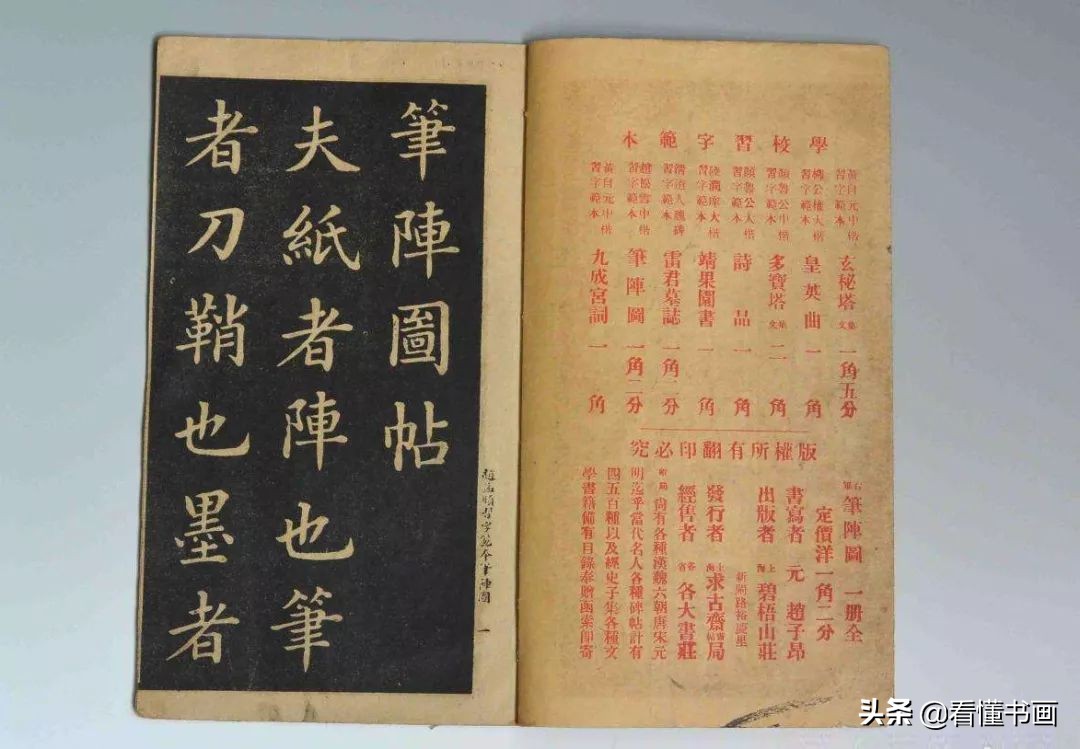 學校習字範本
黃自元中楷習字範本 玄秘塔 集文 一角五分
柳公權大楷習字範本 皇英曲 一角
顏魯公中楷習字範本 多寶塔 集文 二角
顏魯公大楷習字範本 詩品 一角
陸潤庠大楷習字範本 靖果園書 一角
清道人魏碑習字範本 雷君墓誌 一角二分
趙松雪中楷習字範本 筆陣圖 一角二分
黃自元中楷習字範本 九成宮詞 一角
版權所有翻印必究
筆陣圖 一册全
定價洋一角二分
書寫者 元 趙子昂
出版者 上海 碧梧山莊
新閘路裕慶里
發行者 上海 求古齋書帖局
經售者 各省 各大書莊
局尚有各種漢魏六朝唐宋元
明迄乎當代名人各種碑帖計有
四五百種以及經史子集各種文
學書籍備有目錄奉贈函索即寄
趙孟頫習字範本筆陣圖 一
筆陣圖帖
夫紙者陣也筆
者刀鞘也墨者
头条 @看懂书画